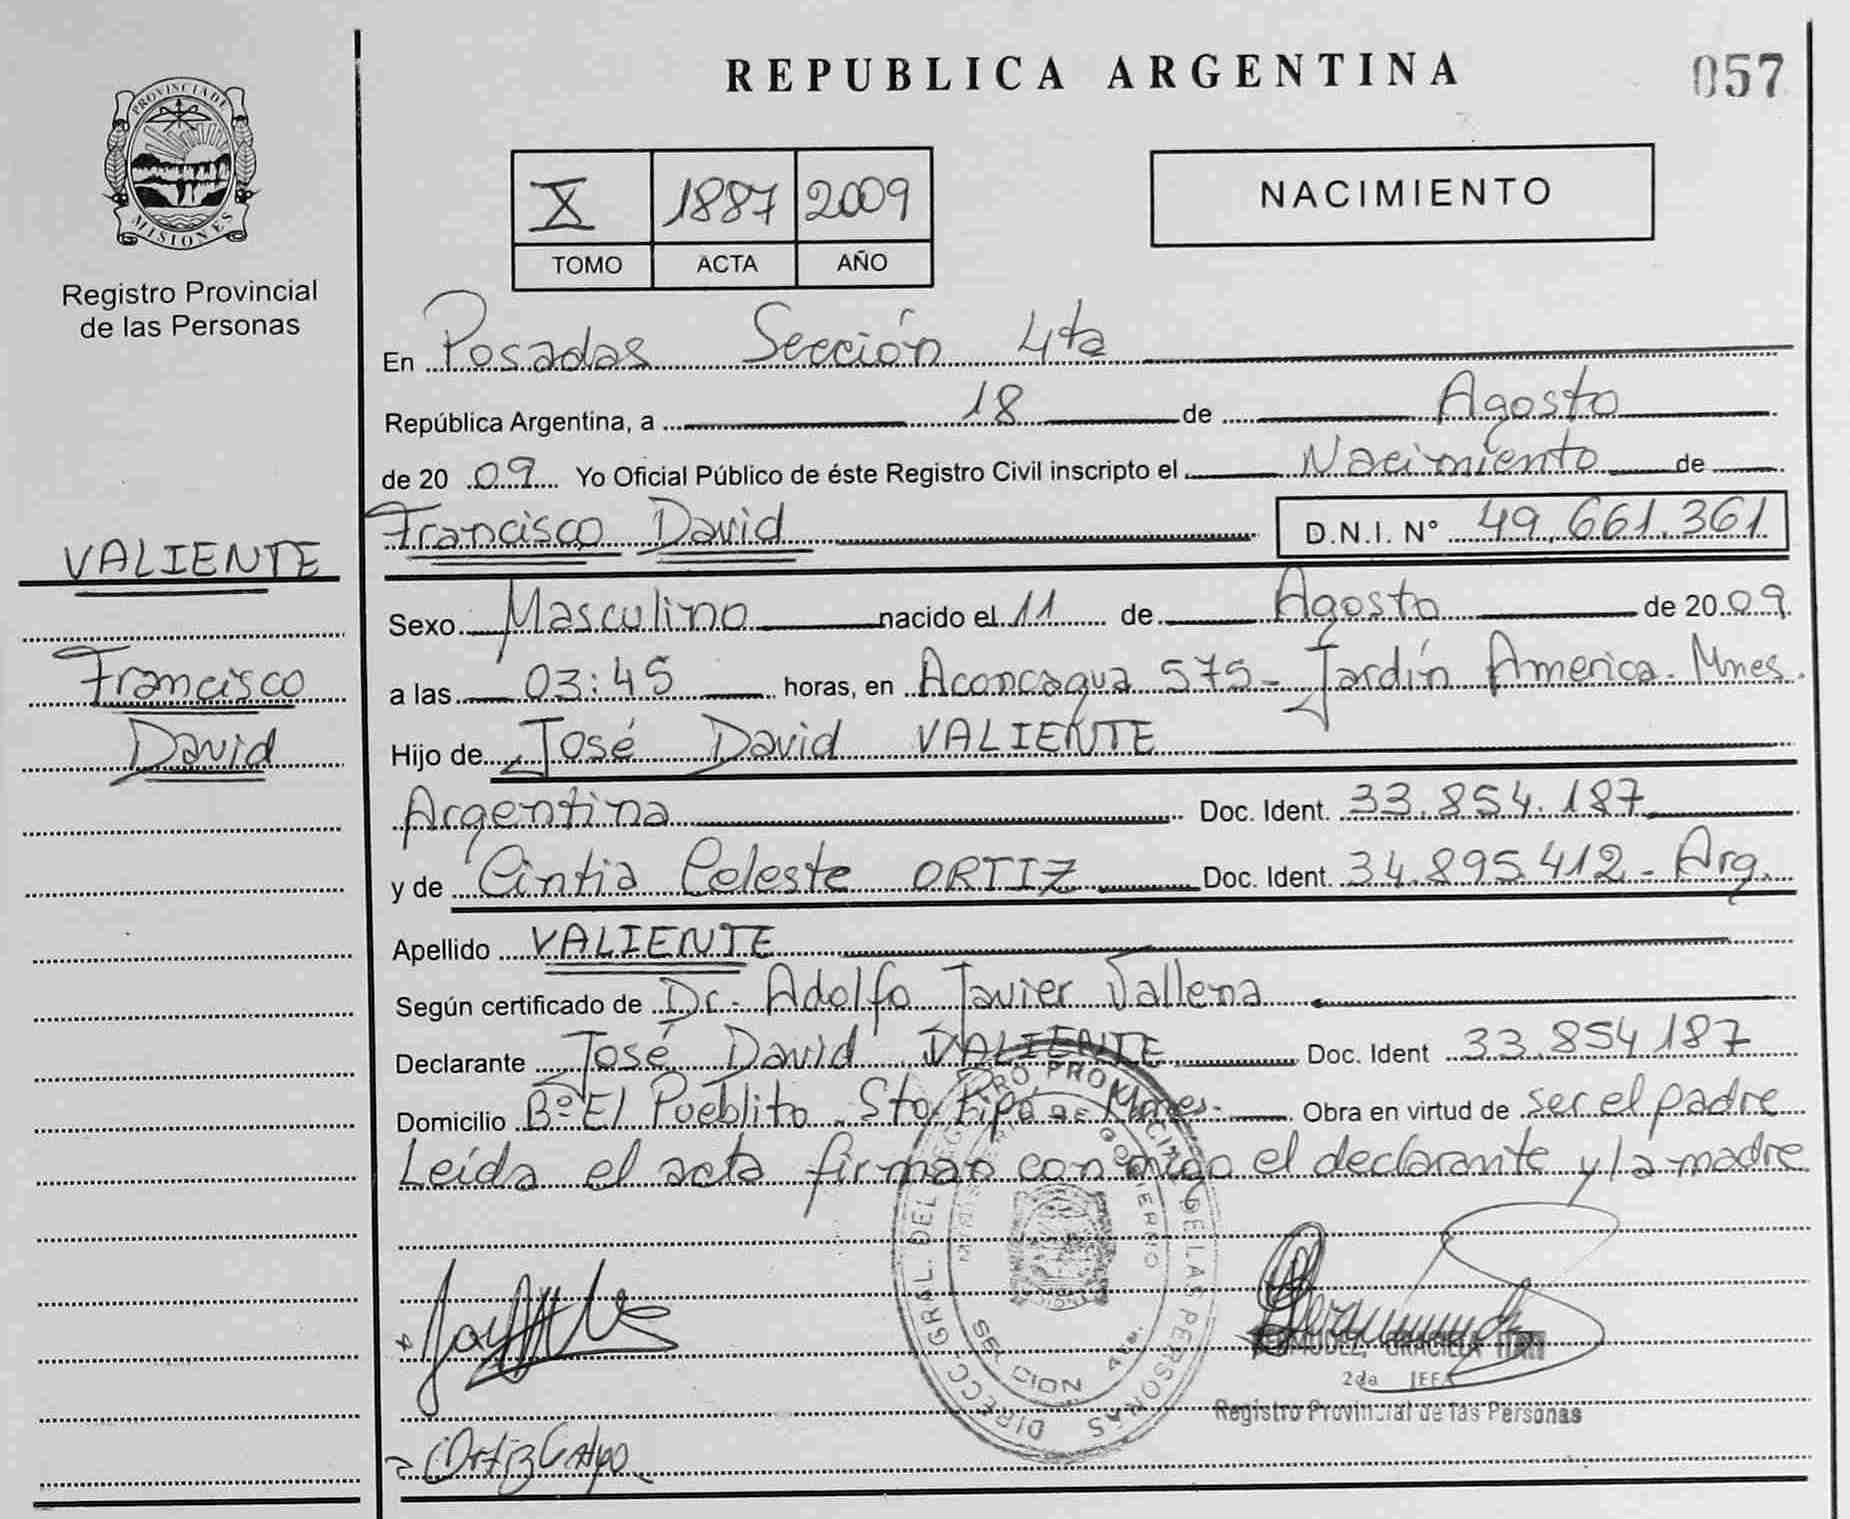 REPUBLICA ARGENTINA
057
PROVINCIA DE
MISIONES
Registro Provincial
de las Personas
X 1887 2009
TOMO ACTA AÑO
NACIMIENTO
En Posadas Sección 4ta
República Argentina, a 18 de Agosto
de 20 09 Yo Oficial Público de éste Registro Civil inscripto el Nacimiento de
Francisco David D.N.I. N° 49.661.361
VALIENTE
Francisco
David
Sexo Masculino nacido el 11 de Agosto de 20 09
a las 03:45 horas, en Aconcagua 575- Jardín America. Mnes.
Hijo de José David VALIENTE
Argentina Doc. Ident. 33.854.187
y de Cintia Celeste ORTIZ Doc. Ident. 34.895.412- Arg.
Apellido VALIENTE
Según certificado de Dr. Adolfo Javier Vallena
Declarante José David VALIENTE Doc. Ident 33.854187
Domicilio Bº El Pueblito - Sto. Pipó - Mnes- Obra en virtud de ser el padre
Leída el acta firman conmigo el declarante y la madre
DIRECC. GRAL. DEL PROVINCIAL DE LAS PERSONAS
DE GOBIERNO
Ortiz
BERMUDEZ, GRACIELA
2da JEFA
Registro Provincial de las Personas